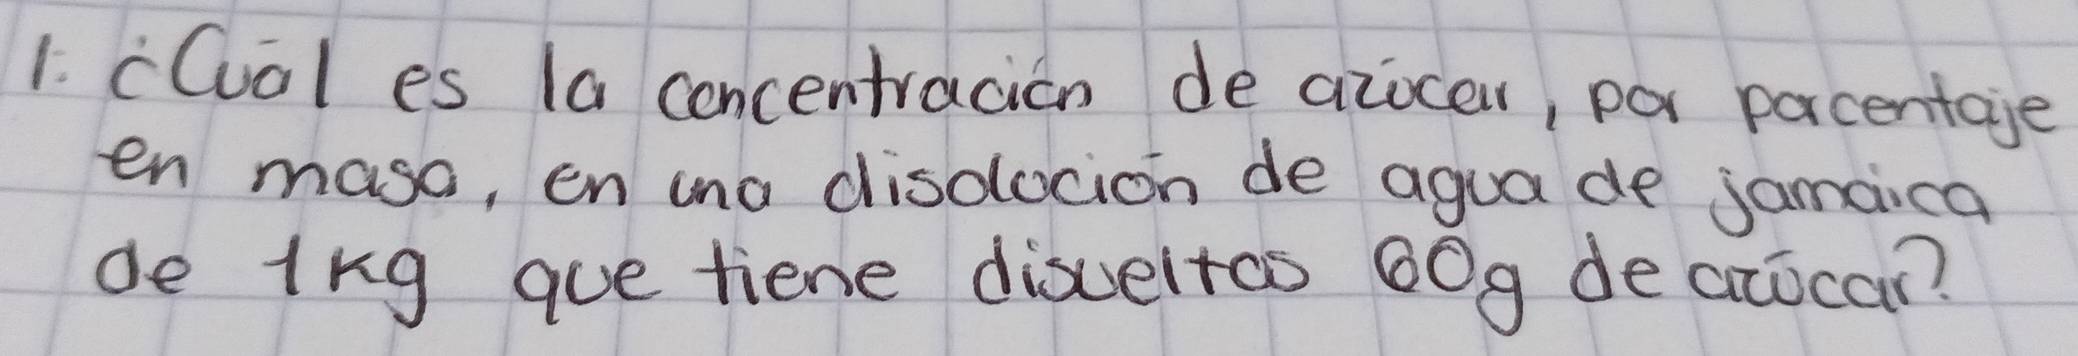 1. ¿Cuál es la concentración de azúcar, por porcentaje
en masa, en una disolución de agua de jamaica
de 1kg que tiene disueltos 60g de azúcar?